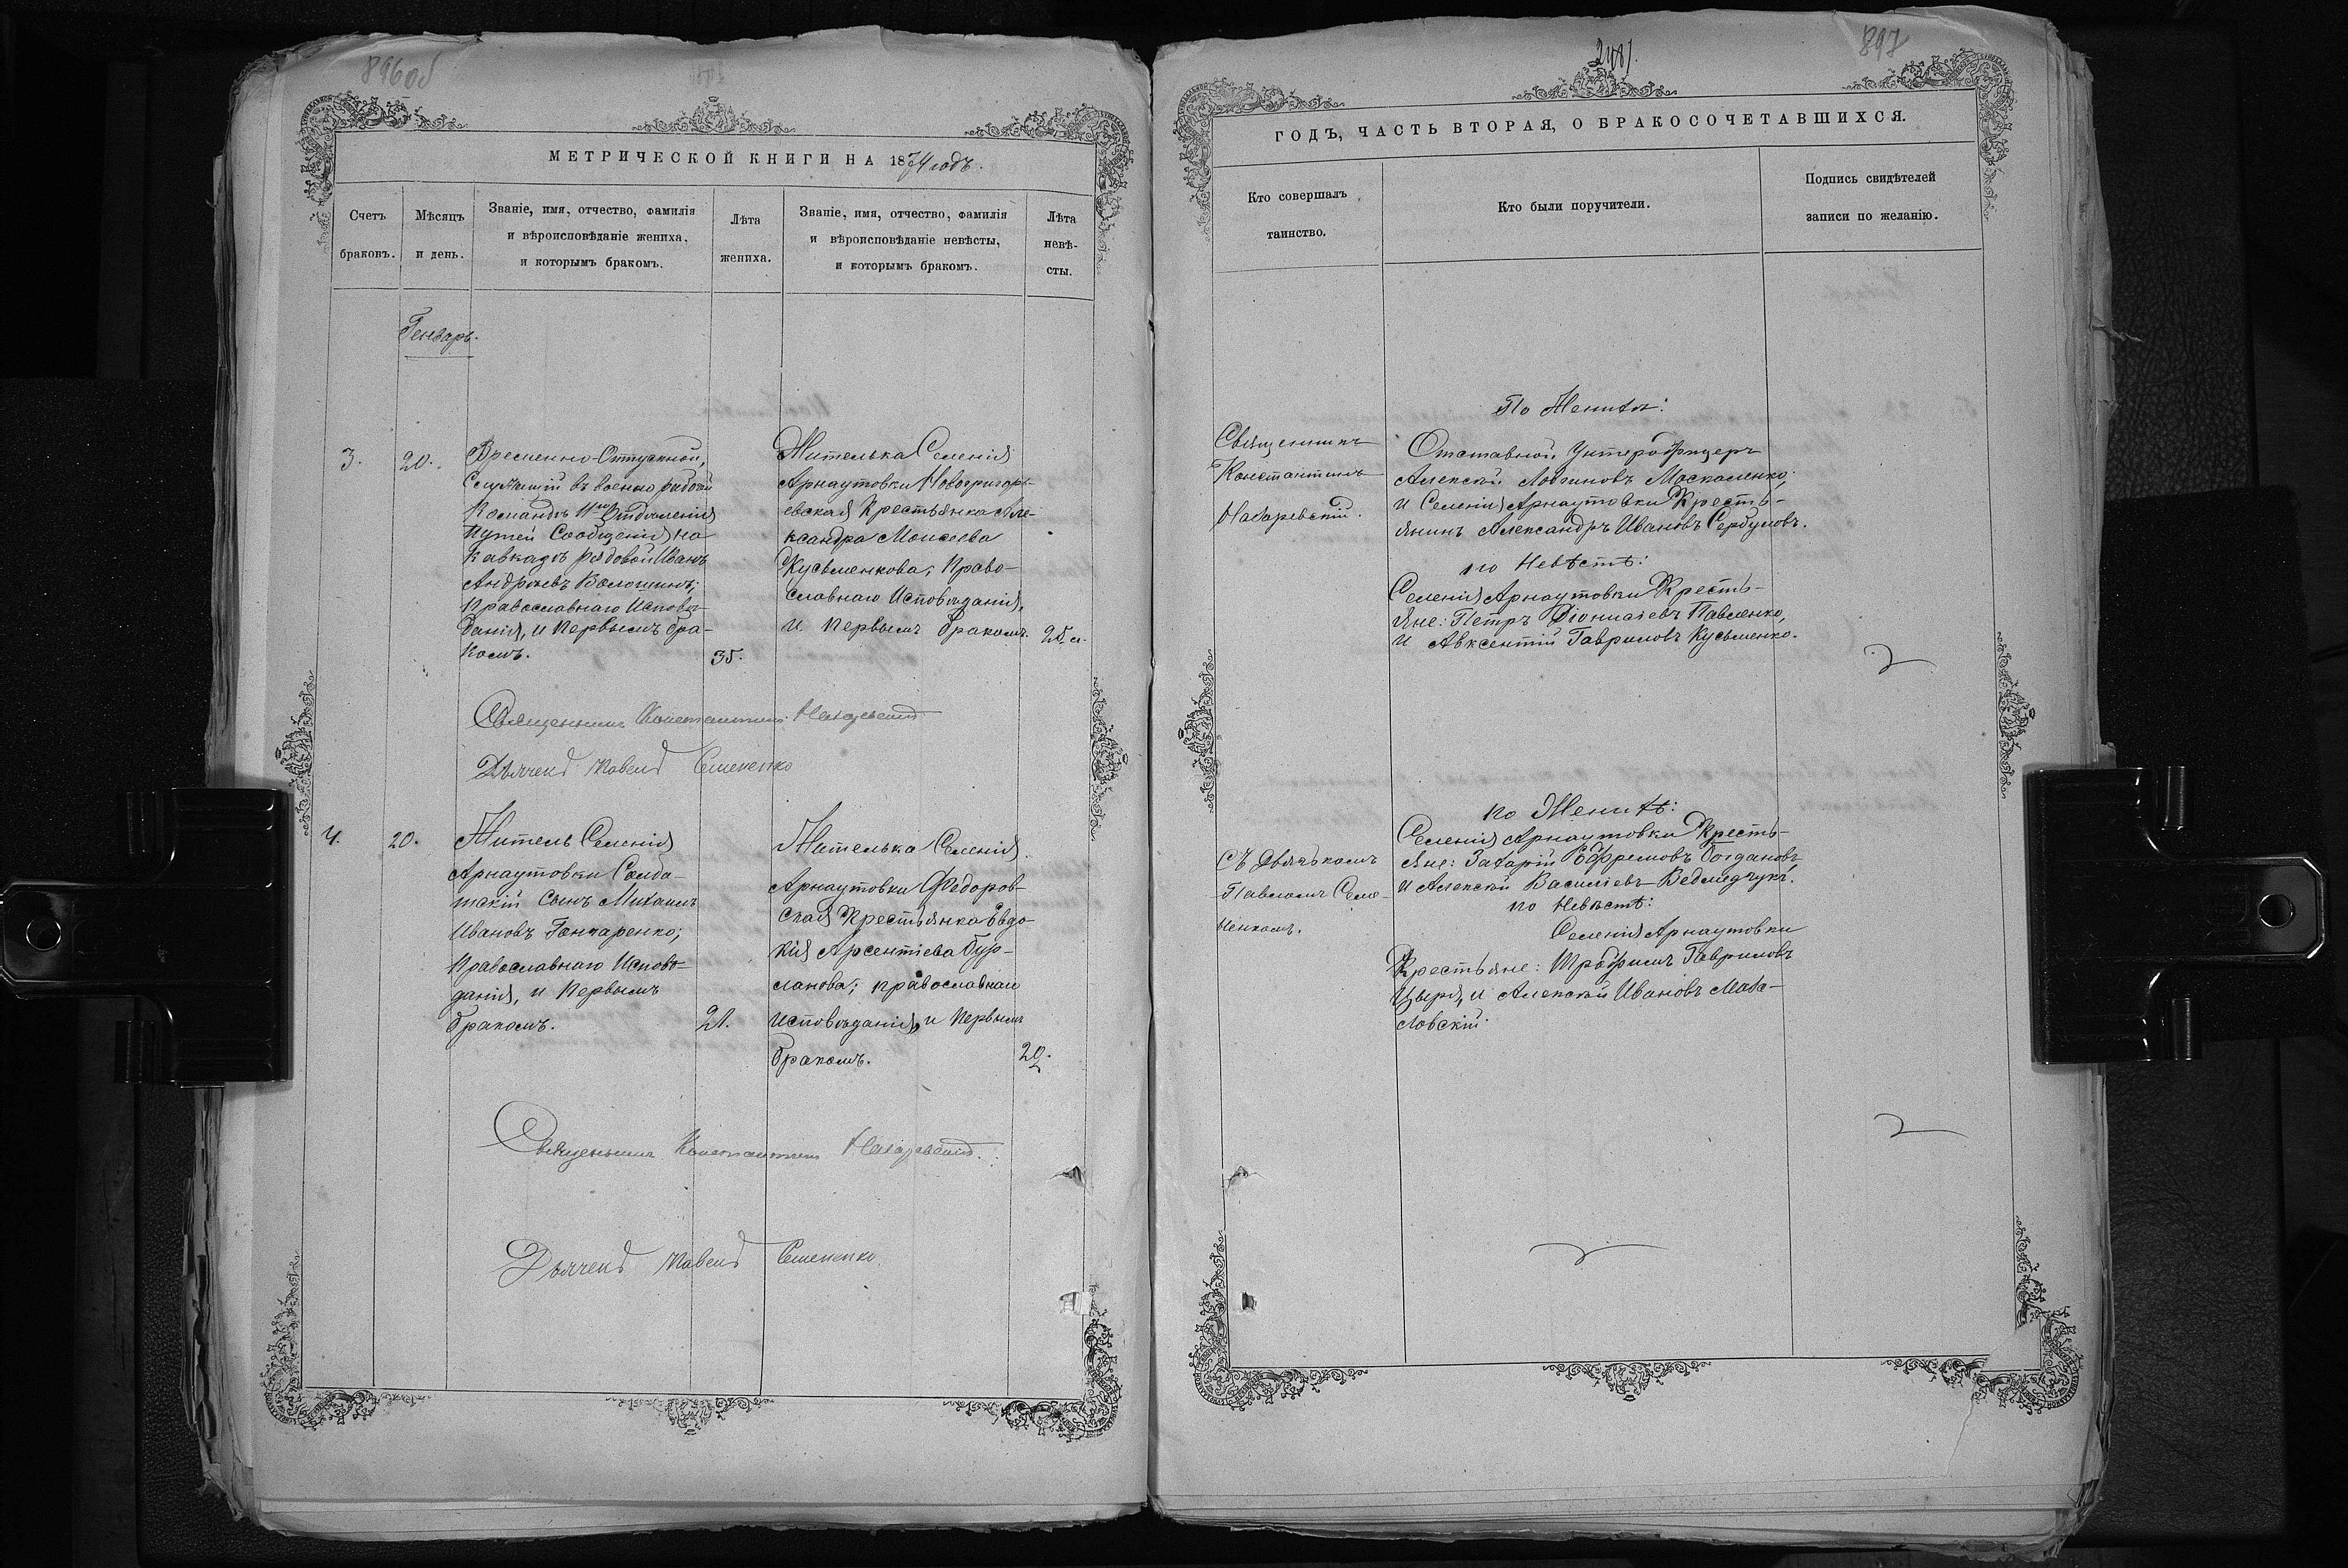 896об
МЕТРИЧЕСКОЙ КНИГИ НА 1874 годъ.
Счетъ браковъ.
Мѣсяцъ и день.
Званіе, имя, отчество, фамилія
и вѣроисповѣданіе жениха,
и которымъ бракомъ.
Лѣта
жениха.
Званіе, имя, отчество, фамилія
и вѣроисповѣданіе невѣсты,
и которымъ бракомъ.
Лѣта
невѣ-
сты.
Генварь.
3.
20.
Временно-Отпускной,
Служащій въ военно рабочей
Командѣ Отдѣленія
Путей Сообщенія на
Кавказѣ рядовой Иванъ
Андреевъ Волошинъ;
Православнаго Исповѣ-
данія, и первымъ бра-
комъ.
35.
Жителька Селенія
Арнаутовки Новогригорь-
евская Крестьянка Але-
ксандра Моисеева
Кузьменкова; Право-
славнаго Исповѣданія,
и первымъ бракомъ.
25.
Священникъ Константинъ
Дьячекъ Павелъ Семененко
4.
20.
Житель Селенія
Арнаутовки Солда-
тскій сынъ Михаилъ
Ивановъ Гончаренко;
Православнаго Исповѣ-
данія, и первымъ
бракомъ.
21.
Жителька Селенія
Арнаутовки Федоров-
ская Крестьянка Евдо-
кія Арсентіева Бур-
ланова; православнаго
исповѣданія, и первымъ
бракомъ.
20.
Священникъ Константинъ
Дьячекъ Павелъ Семененко.
897
ГОДЪ, ЧАСТЬ ВТОРАЯ, О БРАКОСОЧЕТАВШИХСЯ.
Кто совершалъ
таинство.
Кто были поручители.
Подпись свидѣтелей
записи по желанію.
Священникъ
Константинъ
По Женихѣ:
Отставной Унтерофицеръ
Алексѣй Москаленко;
и Селенія Арнаутовки Кресть-
янинъ Александръ Ивановъ Сербуловъ.
по Невѣстѣ:
Селенія Арнаутовки Кресть-
яне: Петръ Діонисіевъ Павленко,
и Авксентій Гавриловъ Кузьменко.
Съ Дьячькомъ
Павломъ Семе-
ненкомъ.
по Женихѣ:
Селенія Арнаутовки Кресть-
яне: Захарій Ефремовъ Богдановъ,
и Алексѣй Василіевъ Ведмедчукъ.
по Невѣстѣ:
Селенія Арнаутовки
Крестьяне: Трофимъ Гавриловъ
Цыря, и Алексѣй Ивановъ